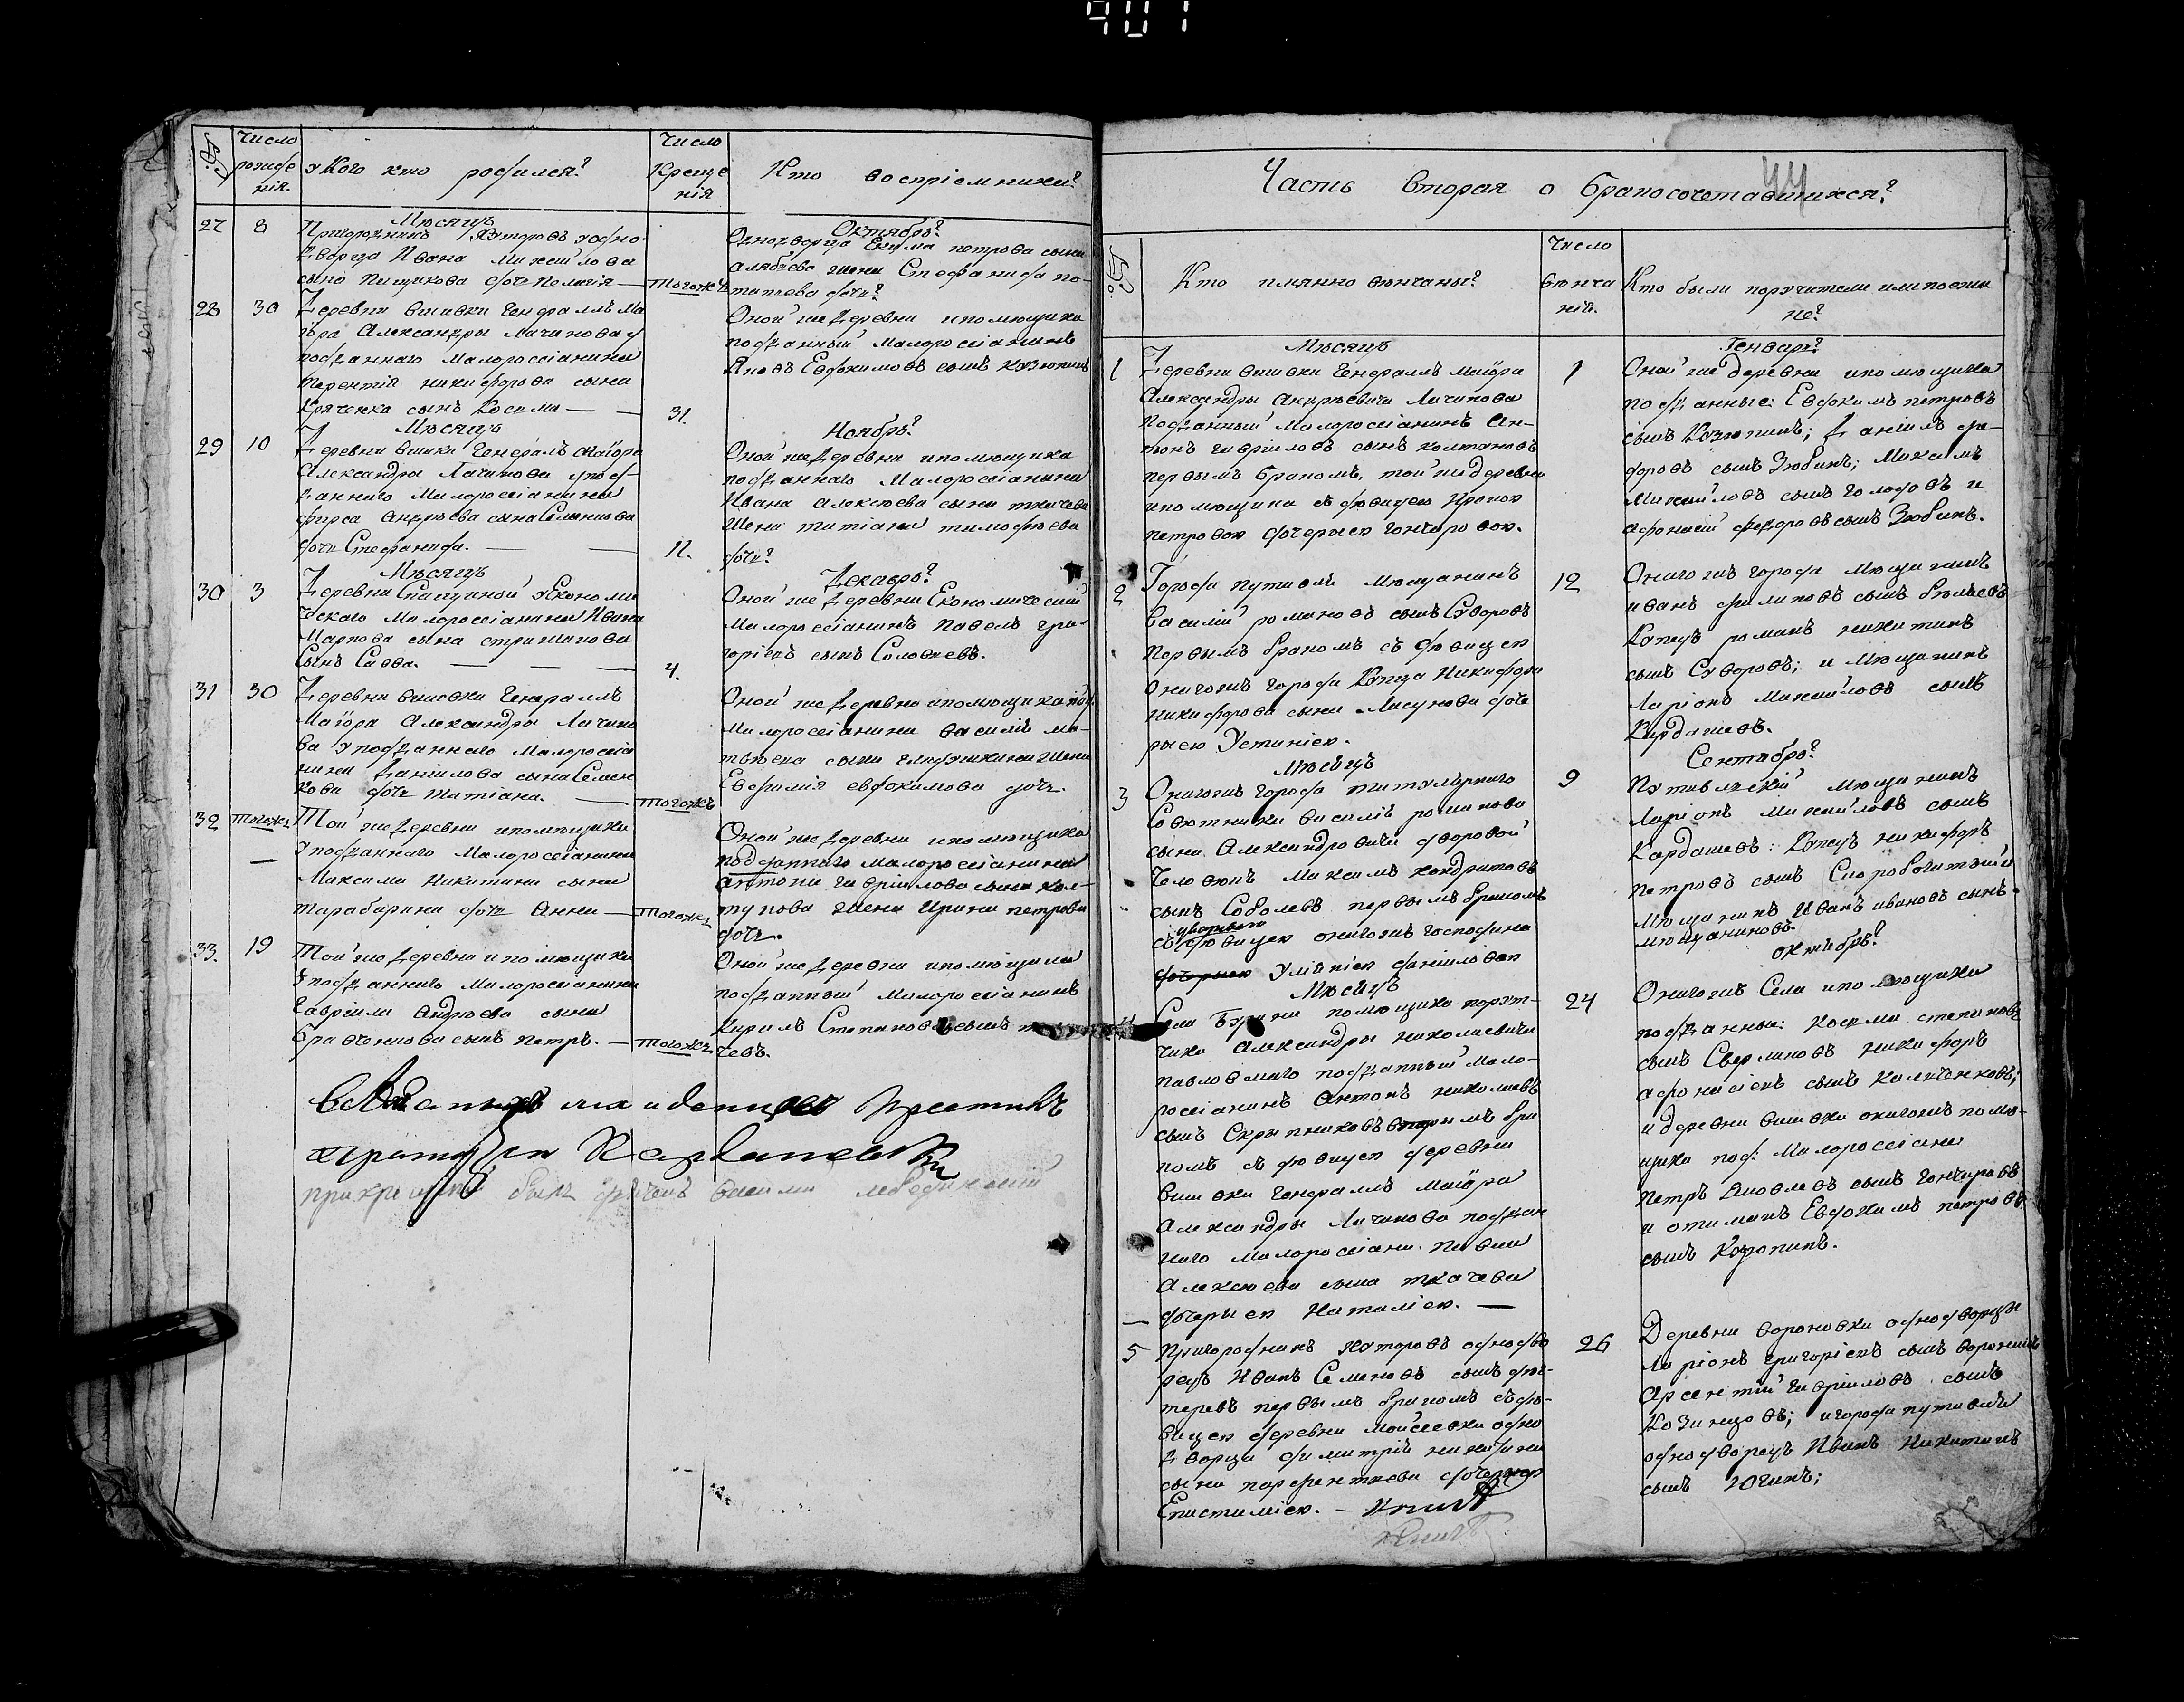 401
№:
Число рожде нія.
у Кого кто родился?
Число Креще нія
Кто воспріемники?
Мѣсяцъ
Октябрь?
27 8
Пригороднихъ Хуторовъ уодно-
дворца Ивана Михайлова
сына Пищикова дочь Пелагія — тогожъ
Однодворца Екима петрова сына
алябьева жена Стефанида по-
тапева дочь?
28 30
Деревни вишвки Генералъ Ма
іора Александры Личинова у
подданнаго Малороссіанина
Терентія никифорова сына
Кряченка сынъ Косьма — — 31.
Оной же деревни ипомѣщика
подданный Малороссіанинъ
Яковъ Евдокимовъ сынъ козюпинъ
Мѣсяцъ
Ноябрь?
29 10
Деревни вишвки Генералъ Маіора
Александры Личинова упод-
даннаго Малороссіанина
фирса Андрѣева сына Семикова
дочь Стефанида. — — 11.
Оной же деревни ипомѣщика
подданнаго Малороссіанина
Ивана Алексѣева сына ткачева
жена татіана тимофѣева
дочь?
Мѣсяцъ
Декабрь?
30 3
Деревни Спащиной уЕкономи
ческаго Малороссіанина Ивана
Маркова сына стрижакова
Сынъ Савва. — — — 4.
Оной же деревни Економической
Малороссіанинъ Павелъ гри-
горіевъ сынъ Соловьевъ.
31 30
Деревни вишвки Генералъ
Маіора Александры Личино
ва уподданнаго Малороссіа
нина Данілова сына Семен
кова дочь татіана. — тогожъ
Оной же деревни ипомѣщика под
Малороссіанина василія ма-
твѣева сына жена
Евфимія евдокимова дочь.
32 тогожъ
Той же деревни ипомѣщика
уподданнаго Малороссіанина
Максима Никитина сына
тарабарина дочь Анна — тогожъ
Оной же деревни ипомѣщика
подданнаго малороссіанина
антона гавріилова сына кол-
тунова жена Ирина петрова
дочь.
33. 19
Той же деревни ипомѣщика
уподданнаго Малороссіанина
Гавріила Андрѣева сына
Кравченкова сынъ петръ. — тогожъ
Оной же деревни ипомѣщика
подданный Малороссіанинъ
Кирилъ Степановъ сынъ
чевъ.
младенцевъ крестилъ
прикрещеніи былъ дьячокъ василій лебединскій
44
Часть вторая о бракосочетавшихся?
№:
Кто имянно вѣнчаны?
Число вѣнча нія.
Кто были поручители илипоезжа не?
Мѣсяцъ
Генварь?
1
Деревни вишвки Генералъ маіора
Александры Андрѣевича Личинова
Подданный Малороссіанинъ Ан-
тонъ гавріиловъ сынъ колтуновъ
первымъ бракомъ, той же деревни
ипомѣщика съ дѣвицею Ириною
петровою дочерью гончаровою.
1
Оной же деревни ипомѣщика
подданные: Евдокимъ петровъ
сынъ Козюпинъ; Даніилъ фе-
доровъ сынъ Зюбинъ; Максимъ
Михайловъ сынъ голодовъ и
афонасій федоровъ сынъ Зюбинъ.
2
Города путивля мѣщанинъ
василій романовъ сынъ Суворовъ
первымъ бракомъ съ дѣвицею
Оногожъ города Купца Никифора
никифорова сына Лисунова доче
рью Устиніею.
12
Оногожъ города мѣщанинъ
иванъ филиповъ сынъ бѣляевъ
Купецъ романъ никитинъ
сынъ Суворовъ; и мѣщанинъ
Ларіонъ Михайловъ сынъ
Кардашевъ.
Мѣсяцъ
Сентябрь?
3
Оногожъ города титулярнаго
Совѣтника василія романова
сына Александровича дворовой
человѣкъ максимъ кондратовъ
сынъ Соболевъ первымъ бракомъ
съ дворовою дѣвицею оногожъ господина
дочерью Уліяніею даніиловою
9
Путивльскій мѣщанинъ
Ларіонъ Михайловъ сынъ
Кардашевъ: Купецъ никифоръ
петровъ сынъ Скоробогатый и
мѣщанинъ Иванъ ивановъ сынъ
мѣщаниновъ.
Мѣсяцъ
октябрь?
Села Бѣрюхи помѣщика порут-
чика Александры николаевича
павловскаго подданный Мало-
россіанинъ Антонъ николаевъ
сынъ Скрыпниковъ вторымъ бра
комъ съ дѣвицею деревни
вишвки генералъ маіора
Александры Личинова поддан
наго малороссіани. Ивана
Алексѣева сына ткачева
— дочерью Наталіею. —
24
Оногожъ Села ипомѣщика
подданные: косьма степановъ
сынъ Сверликовъ никифоръ
афонасіевъ сынъ Каличенковъ;
и деревни вишвки оногожъ помѣ-
щика под: Малороссіане
петръ Яковлевъ сынъ гончаровъ
и отаманъ Евдокимъ петровъ
сынъ Козюпинъ.
5
Пригороднихъ хуторовъ однодво
рецъ Иванъ Семеновъ сынъ дег-
теревъ первымъ бракомъ съ дѣ-
вицею деревни мойсеевки одно
дворца димитрія никифора
сына парфентіева дочерью
Епистиміею. —
26
Деревни вороновки однодворцы
Ларіонъ григоріевъ сынъ воронинъ
Арсентій гавріиловъ сынъ
Козинцовъ; игорода путивля
однодворецъ Иванъ Никитинъ
сынъ Югинъ;